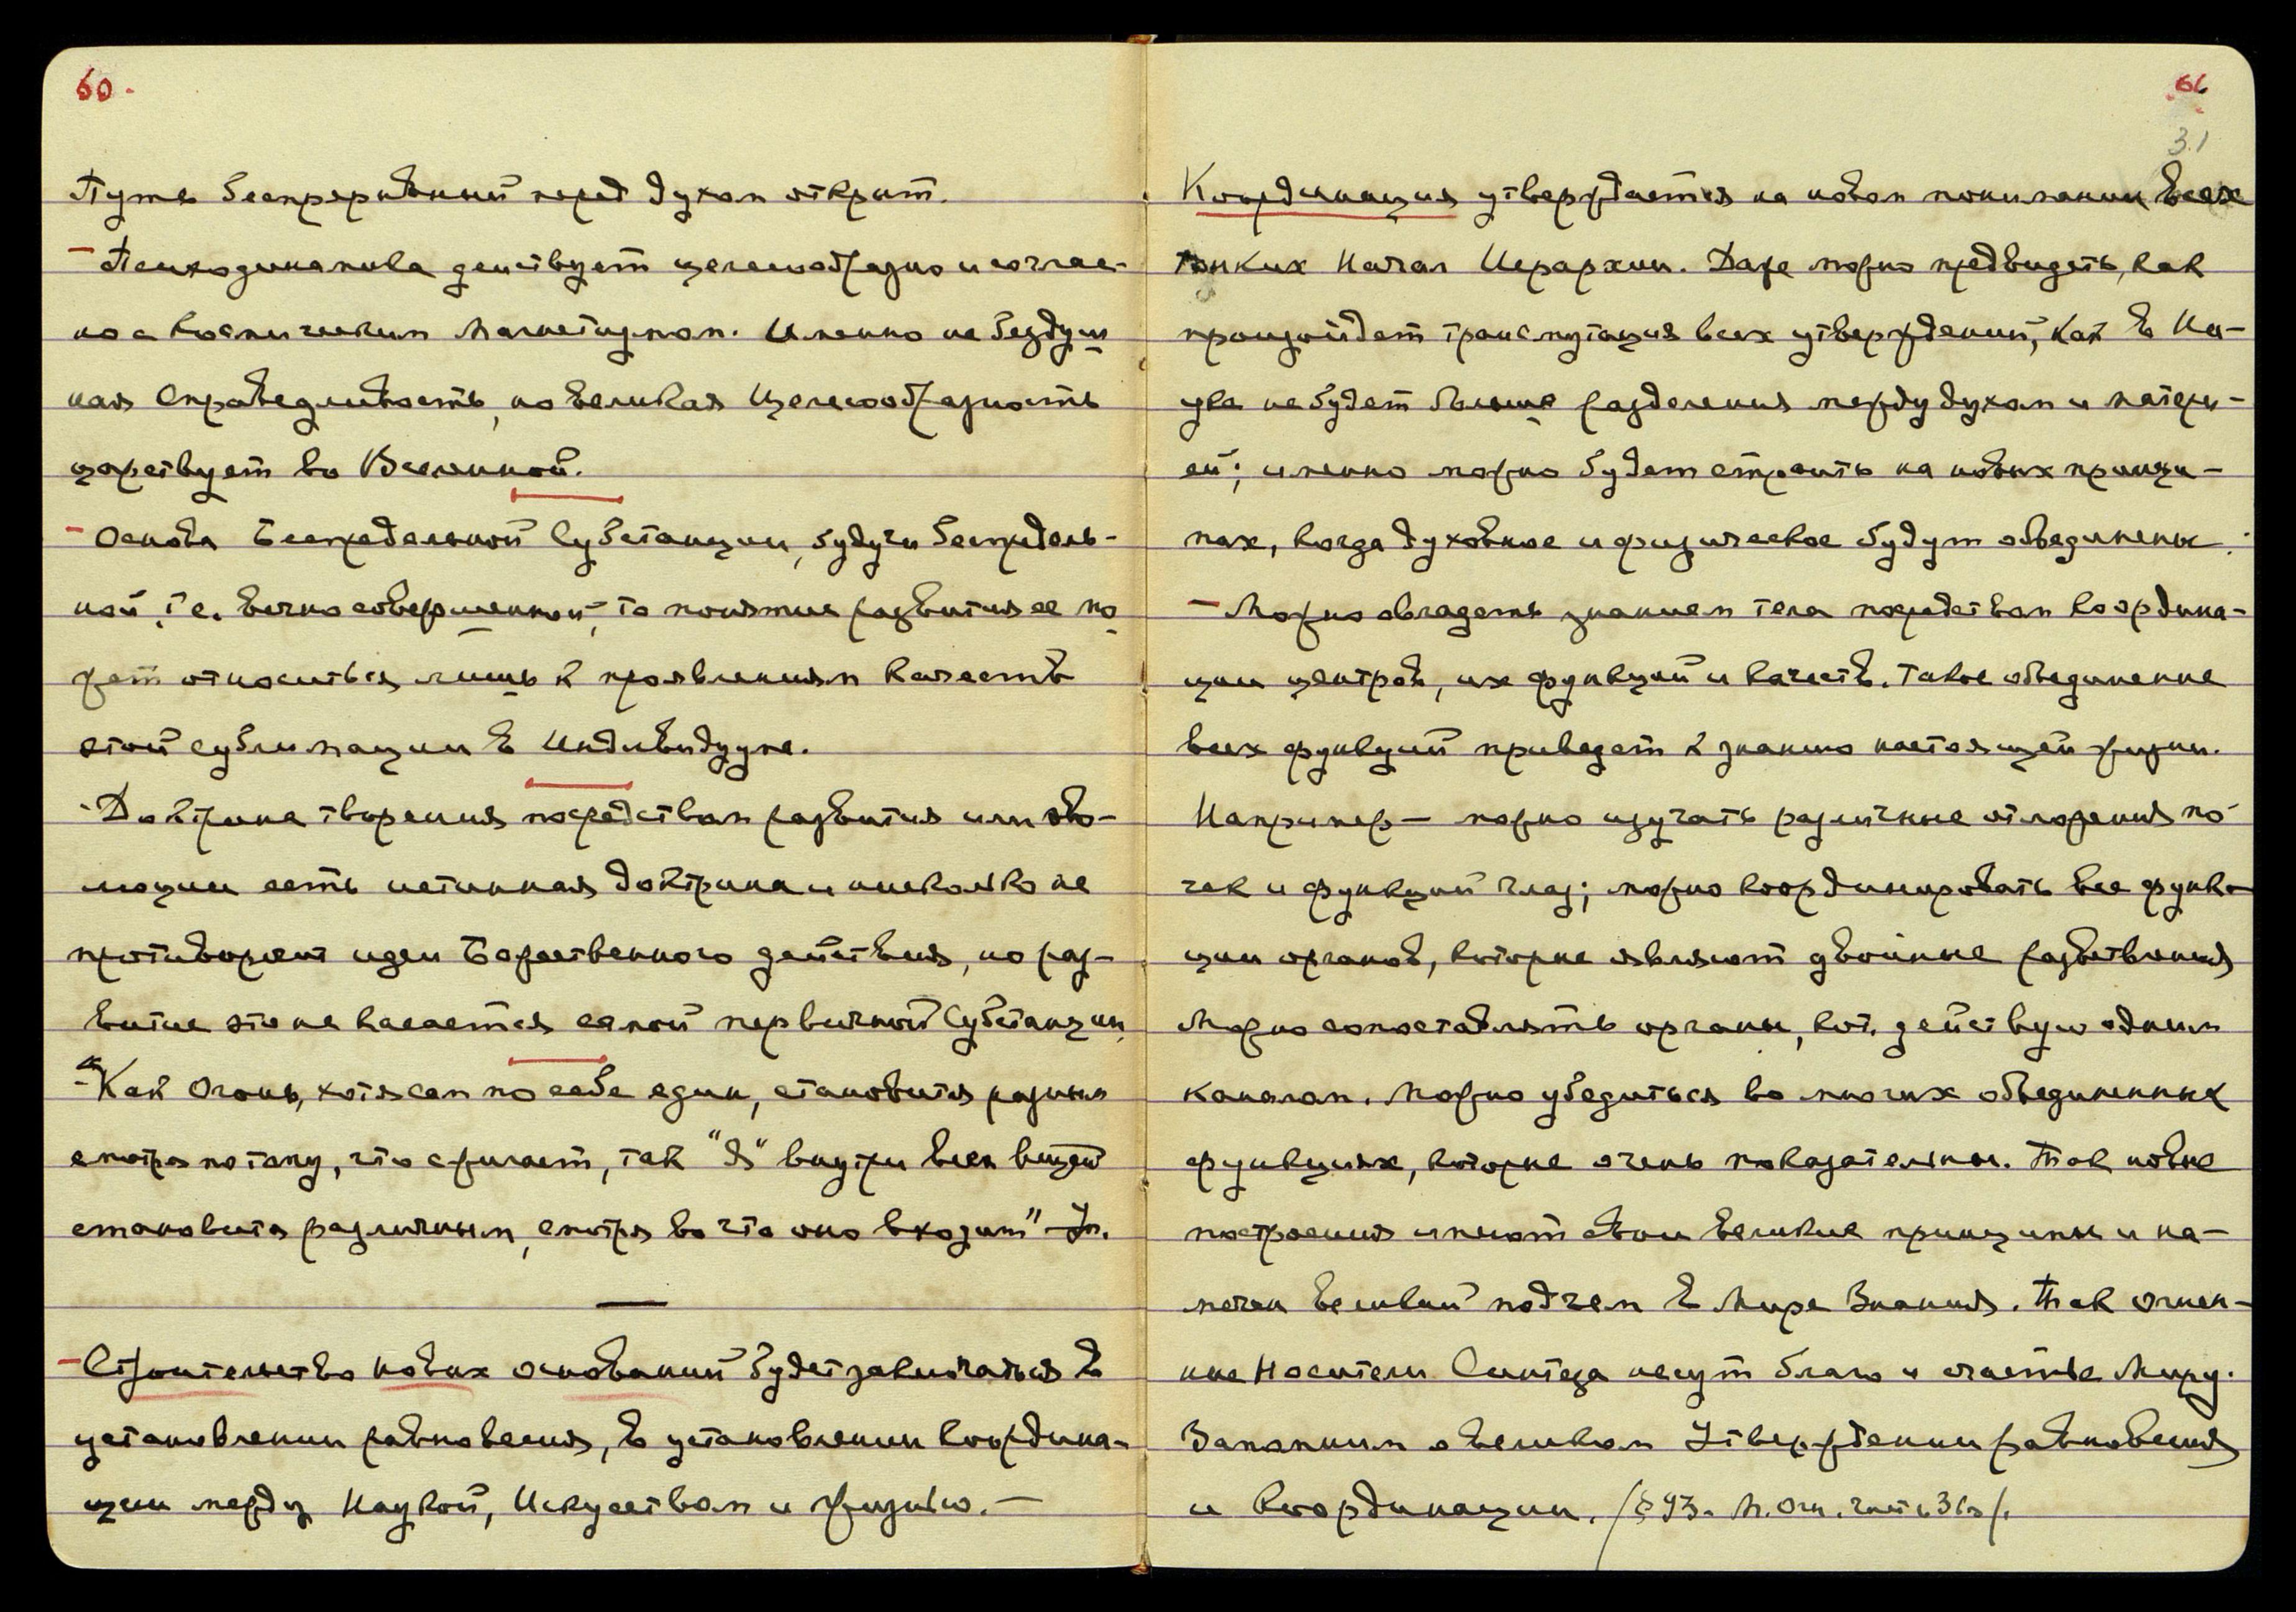 60.
Путь беспрерывный перед духом открыт.
– Психодинамика действует целесообразно и соглас-
но с Космическим Магнетизмом. Именно не бездуш
ная Справедливость, но великая Целесообразность
царствует во Вселенной.
– Основа Беспредельной Субстанции, будучи беспредель-
ной, т.е. вечно совершенной, то понятие развития ее мо
жет относиться лишь к проявлениям качеств
этой сублимации в Индивидууме.
– Доктрина творения посредством развития или эво-
люции есть истинная доктрина и нисколько не
противоречит идеи Божественного действия, но раз-
витие это не касается самой первичной Субстанции.
– "Как Огонь, хотя сам по себе един, становится разным
смотря потому, что сжигает, так "Я" внутри всех вещей
становится различным, смотря во что оно входит" Уп.
—
– Строительство новых оснований будет заключаться в
установлении равновесия, в установлении координа-
ции между Наукой, Искусством и Жизнью. —
61
31
Координация утверждается на новом понимании всех
тонких Начал Иерархии. Даже можно предвидеть, как
произойдет трансмутация всех утверждений, как в На-
уке не будет больше разделения между духом и матери-
ей; именно можно будет строить на новых принци-
пах, когда духовное и физическое будут объединены.
– Можно овладеть знанием тела посредством координа-
ции центров, их функций и качеств. Такое объединение
всех функций приведет к знанию настоящей жизни.
Например – можно изучать различные отложения по-
чек и функций глаз; можно координировать все функ-
ции органов, которые являют двойные разветвления
Можно сопоставлять органы, кот. действую одним
каналом. Можно убедиться во многих объединенных
функциях, которые очень показательны. Так новые
построения имеют свои великие принципы и на-
мечен великий подъем в Мире Знания. Так огнен-
ные Носители Синтеза несут благо и счастье Миру.
Запомним о великом Утверждении равновесия
и координации. /§ 93. М. Огн. часть 3ья/.